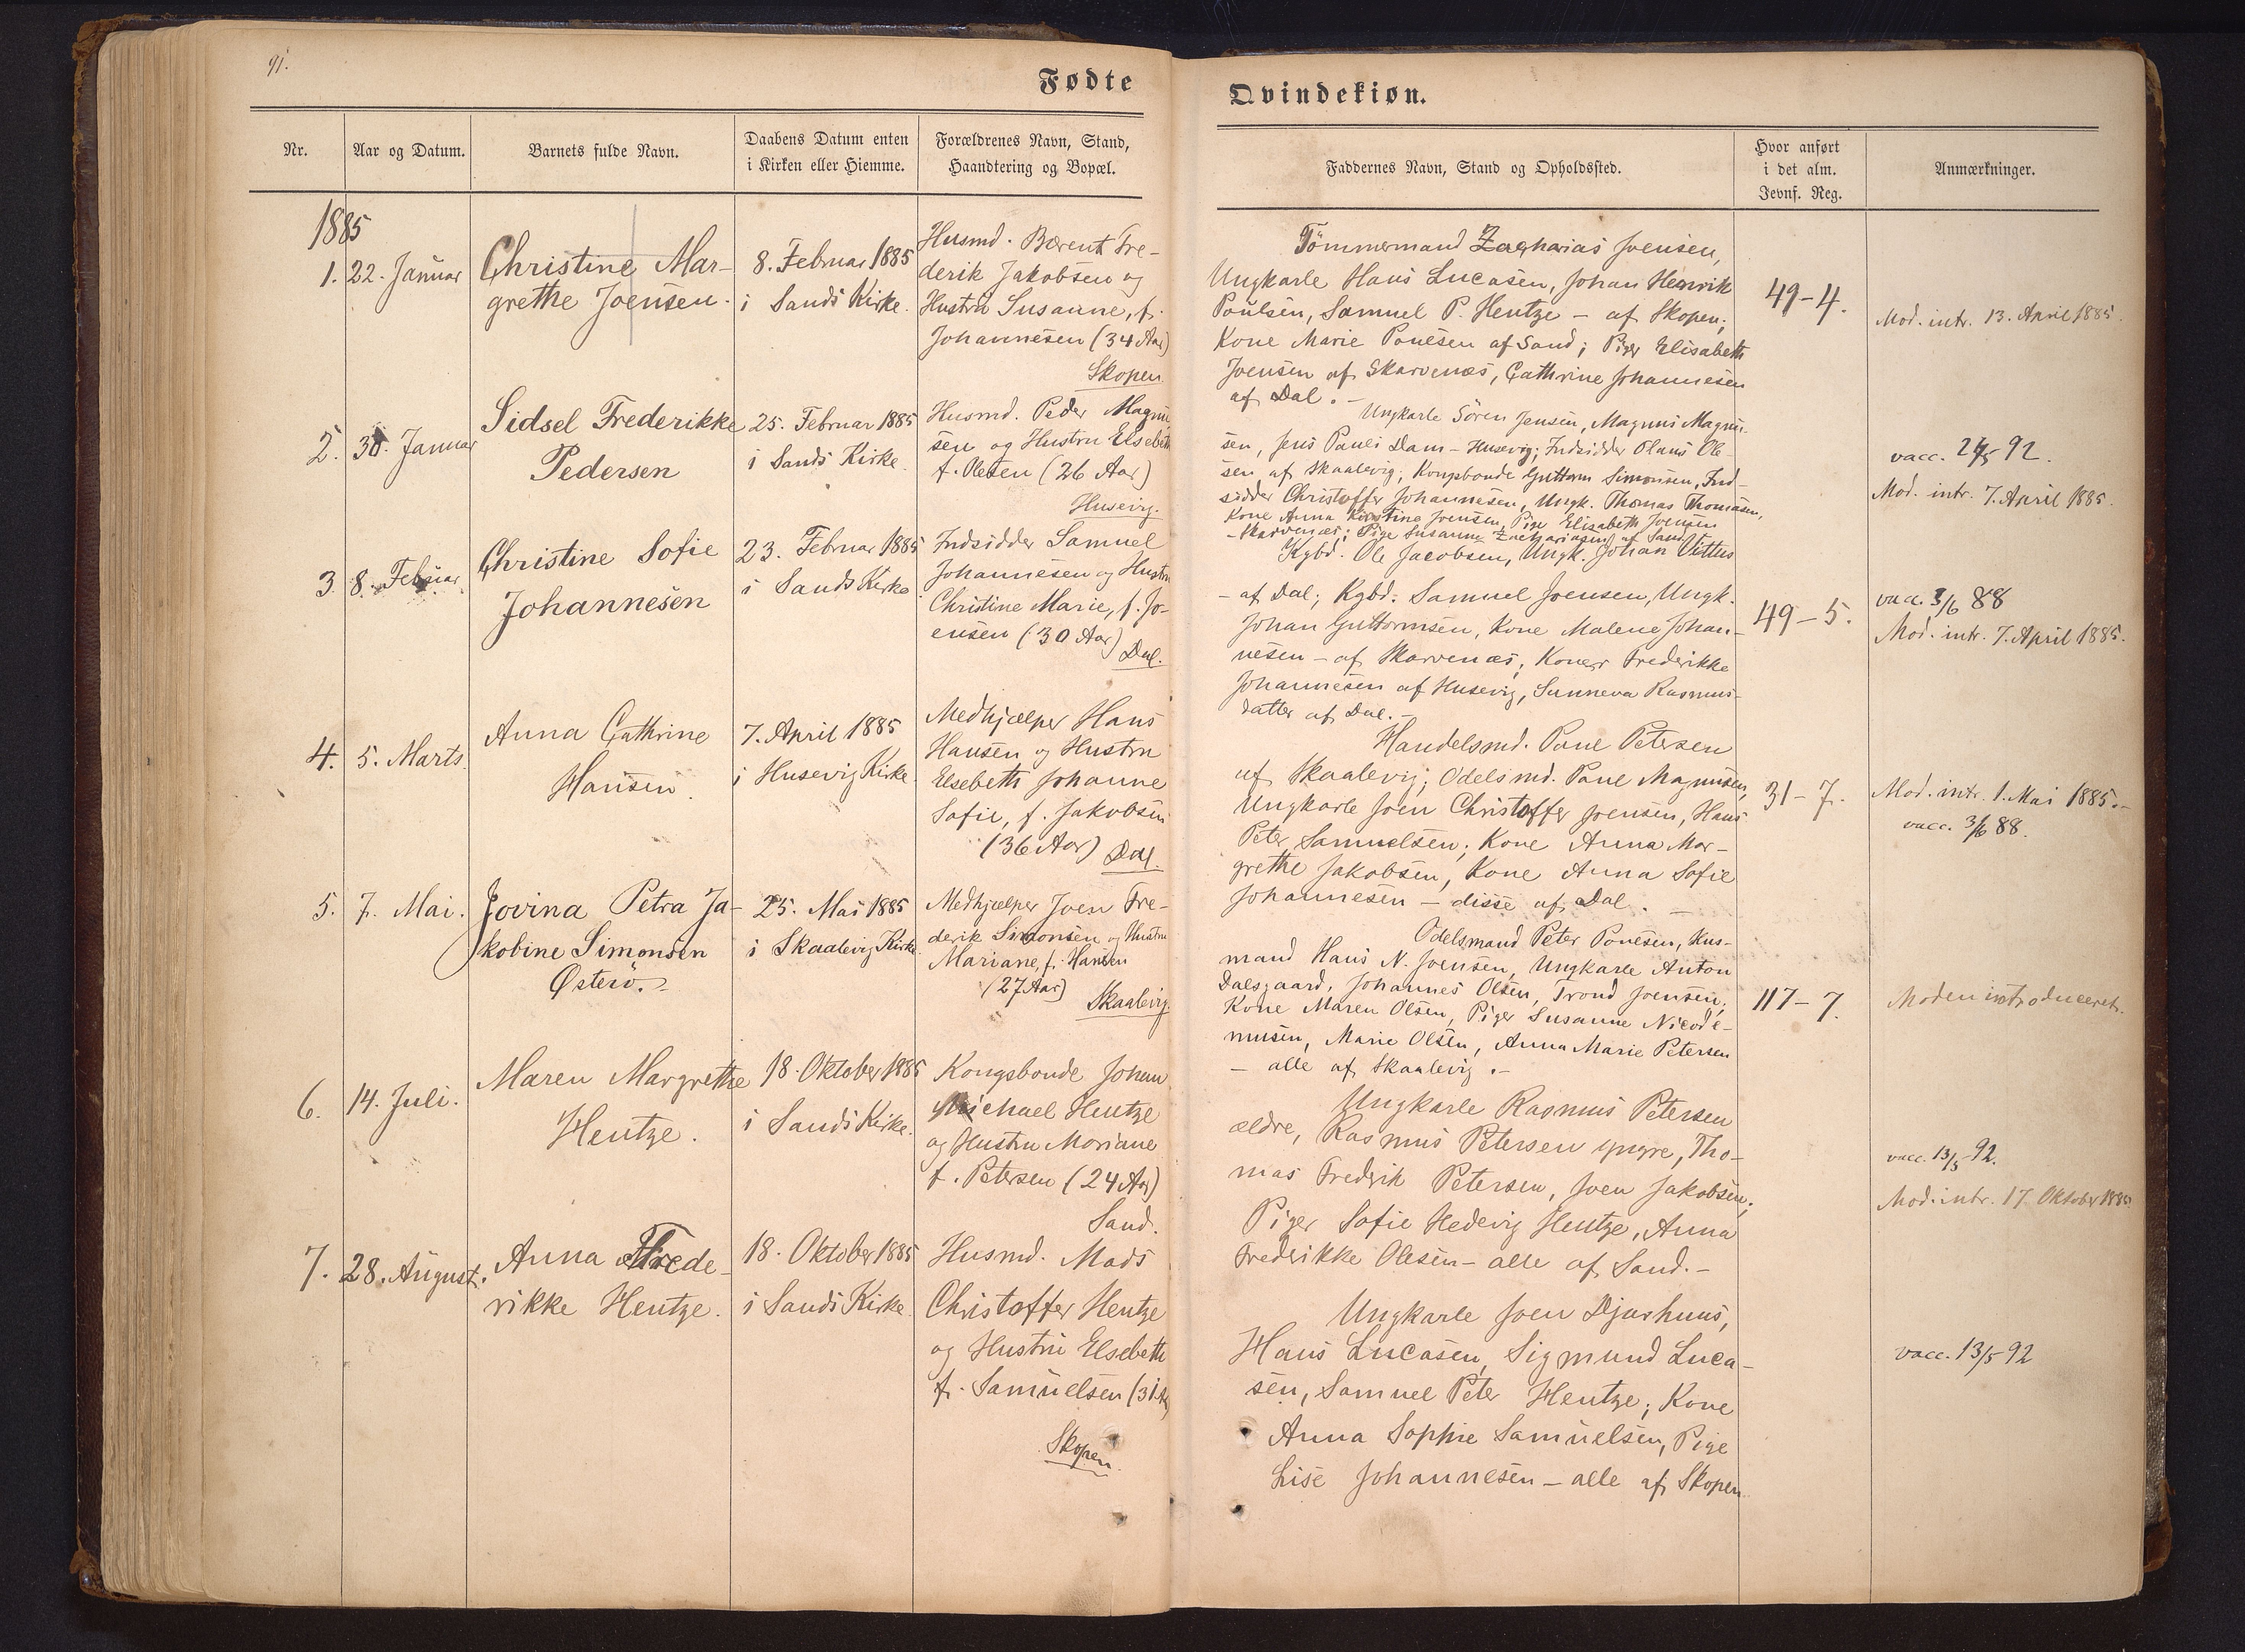 91.
Fødte
Qvindekiøn.
Nr.
Aar og Datum.
Barnets fulde Navn.
Daabens Datum enten
i Kirken eller Hiemme.
Forældrenes Navn, Stand,
Haandtering og Bopæl.
Faddernes Navn, Stand og Opholdssted.
Hvor anført
i det alm.
Jevnf. Reg.
Anmærkninger.
1885
1.
22. Januar
Christine Mar-
grethe Joensen.
8. Februar 1885
i Sands Kirke.
Husmd. Bærent Fre-
derik Jakobsen og
Hustru Susanne, f.
Johannesen (34 Aar)
Skopen
Tömmermand Zacharias Joensen,
Ungkarle Hans Lucasen, Johan Henrik
Poulsen, Samuel P. Hentze - af Skopen;
Kone Marie Poulsen af Sand; Piger Elisabeth
Joensen af Skarvenæs, Cathrine Johannesen
af Dal. -
49-4.
Mod. intr. 13. April 1885.
2.
30. Januar
Sidsel Frederikke
Pedersen
25. Februar 1885
i Sands Kirke.
Husmd. Peder Magnu
sen og Hustru Elsebeth
f. Olesen (26 Aar)
Husevig.
Ungkarle Sören Jensen, Magnus Magnu-
sen, Jens Pauli Dam - Husevig; Indsidder Olaus Ole-
sen af Skaalevig, Kongsbonde Guttorm Simonsen, Ind-
sidder Christoffer Johannesen, Ungk. Thomas Thomasen,
Kone Anna Kirstine Joensen, Pige Elisabeth Joensen
- Skarvenæs; Pige Susanne Zachariasen af Sand.
vacc. 2/5 92.
Mod. intr. 7. April 1885.
3.
8. Februar
Christine Sofie
Johannesen
23. Februar 1885
i Sands Kirke
Indsidder Samuel
Johannesen og Hustru
Christine Marie, f. Jo-
ensen (30 Aar)
Dal.
Kgbd. Ole Jacobsen, Ungk. Johan Vittus
- af Dal; Kgbd. Samuel Joensen, Ungk.
Johan Guttormsen, Kone Malene Johan-
nesen - af Skarvenæs, Koner Frederikke
Johannesen af Husevig, Sunneva Rasmus-
datter af Dal. -
49-5.
vacc. 3/6 88
Mod. intr. 7. April 1885.
4.
5. Marts.
Anna Cathrine
Hansen.
7. April 1885
i Husevig Kirke.
Medhjælper Hans
Hansen og Hustru
Elsebeth Johanne
Sofie, f. Jakobsen
(36 Aar) Dal.
Handelsmd. Poul Petersen
af Skaalevig; Odelsmd. Poul Magnusen,
Ungkarle Joen Christoffer Joensen, Hans
Peter Samuelsen; Kone Anna Mar-
grethe Jakobsen, Kone Anna Sofie
Johannesen - disse af Dal. -
31-7.
Mod. intr. 1. Mai 1885.-
vacc. 3/6 88.
5.
7. Mai.
Jovina Petra Ja-
kobine Simonsen
Østerö.-
25. Mai 1885
i Skaalevig Kirke.
Medhjælper Joen Fre-
derik Simonsen og Hustru
Mariane, f. Hansen
(27 Aar)
Skaalevig
Odelsmand Peter Poulsen, Hus-
mand Hans N. Joensen, Ungkarle Anton
Dalsgaard, Johannes Olsen, Trond Joensen;
Kone Maren Olsen, Piger Susanne Nicode-
musen, Marie Olsen, Anna Marie Petersen
- alle af Skaalevig.-
117-7.
Moden introduceret.
6.
14. Juli.
Maren Margrethe
Hentze.
18. Oktober 1885
i Sands Kirke.
Kongsbonde Johan
Michael Hentze
og Hustru Mariane
f. Petersen (24 Aar)
Sand.
Ungkarle Rasmus Petersen
ældre, Rasmus Petersen yngre, Tho-
mas Fredrik Petersen, Joen Jakobsen;
Piger Sofie Hedevig Hentze, Anna
Frederikke Olesen - alle af Sand.-
vacc. 13/5 92.
Mod. intr. 17. Oktober 1885
7.
28. August.
Anna Frede-
rikke Hentze.
18. Oktober 1885
i Sands Kirke.
Husmd. Mads
Christoffer Hentze
og Hustru Elsebeth
f. Samuelsen (31 Aar)
Skopen.
Ungkarle Joen Djurhuus,
Hans Lucasen, Sigmund Luca-
sen, Samuel Peter Hentze; Kone
Anna Sophie Samuelsen, Pige
Lise Johannesen - alle af Skopen
vacc. 13/5 92